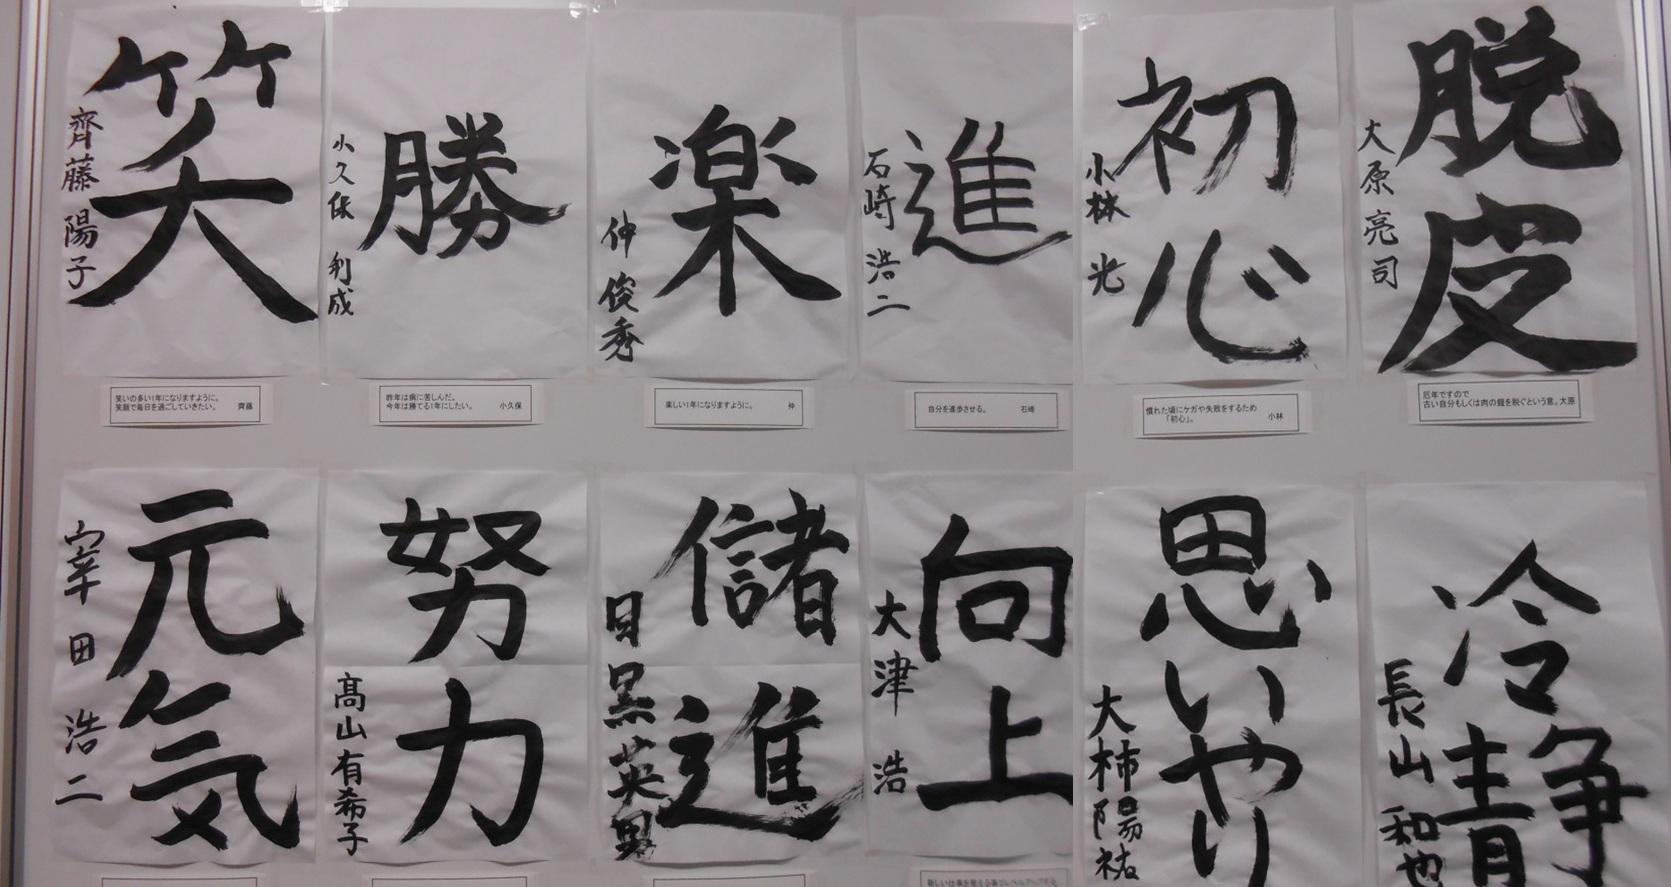 笑
齊藤 陽子
勝
小久保 利成
楽
仲 俊秀
進
石崎 浩二
初心
小林 光
脱皮
大原 亮司
笑いの多い1年になりますように。
笑顔で毎日を過ごしていきたい。 齊藤
昨年は病に苦しんだ。
今年は勝てる1年にしたい。 小久保
楽しい1年になりますように。 仲
自分を進歩させる。 石崎
慣れた頃にケガや失敗をするため
「初心」。 小林
厄年ですので
古い自分もしくは肉の鎧を脱ぐという意。大原
元気
宰田 浩二
努力
高山有希子
儲進
目黒英男
向上
大津 浩
思いやり
大柿陽祐
冷静
長山 和也